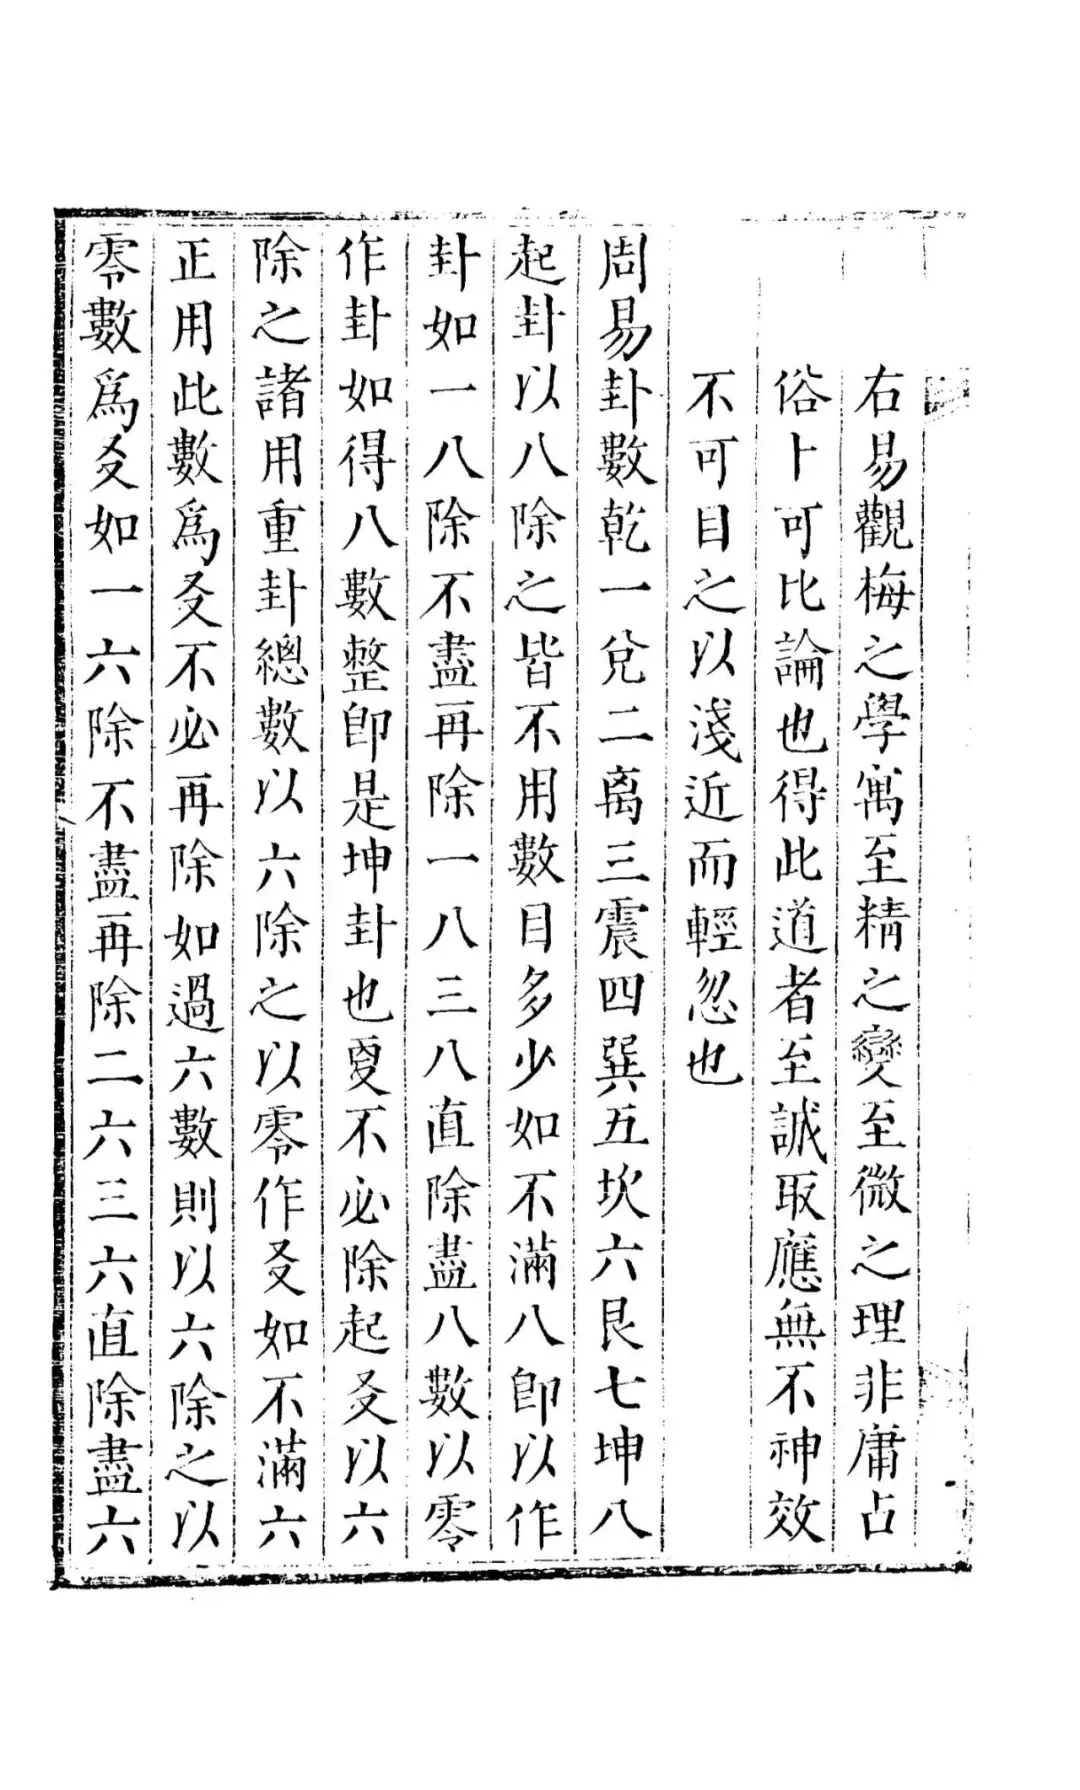 右易觀梅之學寓至精之變至微之理非庸占
俗卜可比論也得此道者至誠取應無不神效
不可目之以淺近而輕忽也
周易卦數乾一兌二离三震四巽五坎六艮七坤八
起卦以八除之皆不用數目多少如不滿八即以作
卦如一八除不盡再除一八三八直除盡八數以零
作卦如得八數整即是坤卦也更不必除起爻以六
除之諸用重卦總數以六除之以零作爻如不滿六
正用此數爲爻不必再除如過六數則以六除之以
零數爲爻如一六除不盡再除二六三六直除盡六